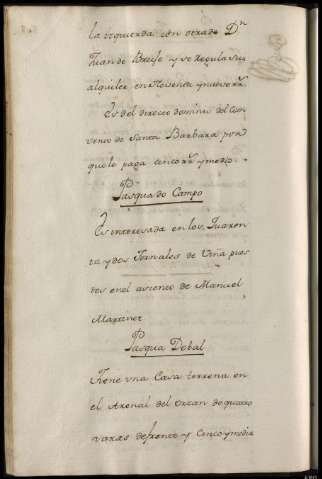 la izquierda con otra de Dn
Juan de Breife y se regula su
alquiler en Noventa y nueve rr.
Es del directo dominio del Con
vento de Santa Barbara por
que le paga cinco rr. y medio.
Pasqua do Campo
Es interesada en los Quaren
ta y dos Jornales de Viña pues
tos en el asiento de Manuel
Martinez
Pasqua Dobal
Tiene una Casa terrena en
el Arenal del Orzan de quatro
varas de frente y Cinco y media